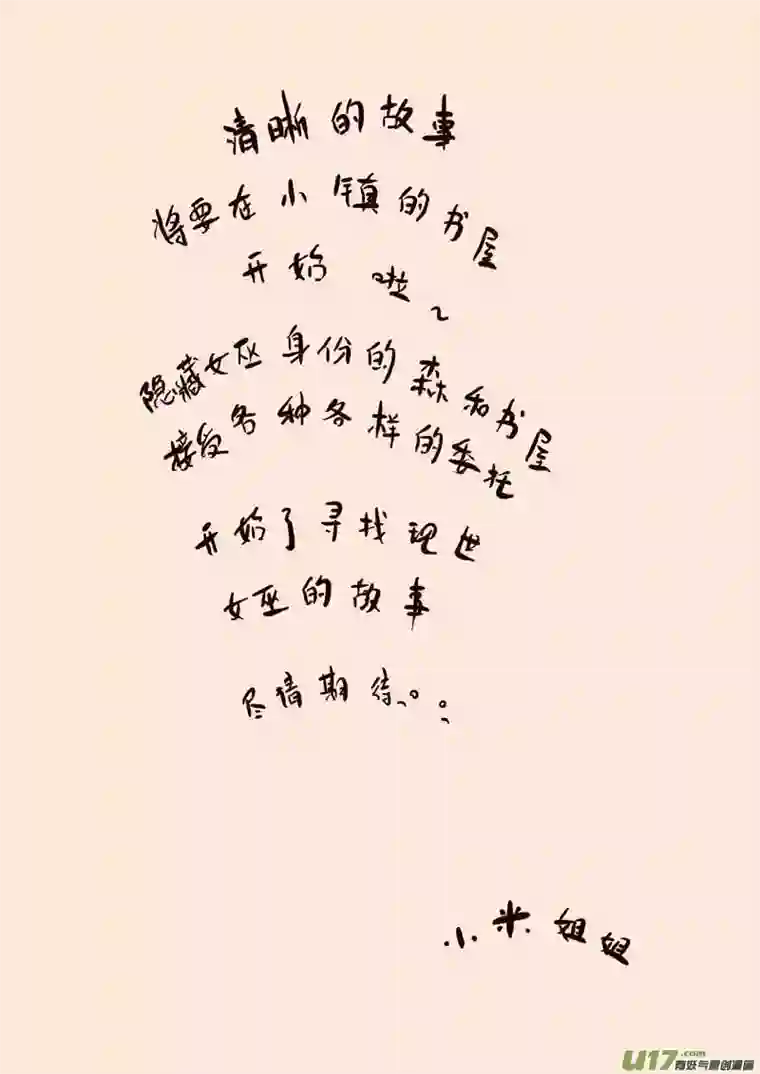 清晰的故事
将要在小镇的书屋
开始啦~
隐藏女巫身份的森和书屋
接受各种各样的委托
开始了寻找现世
女巫的故事
尽情期待。。
小米姐姐
U17.com
有妖气原创漫画